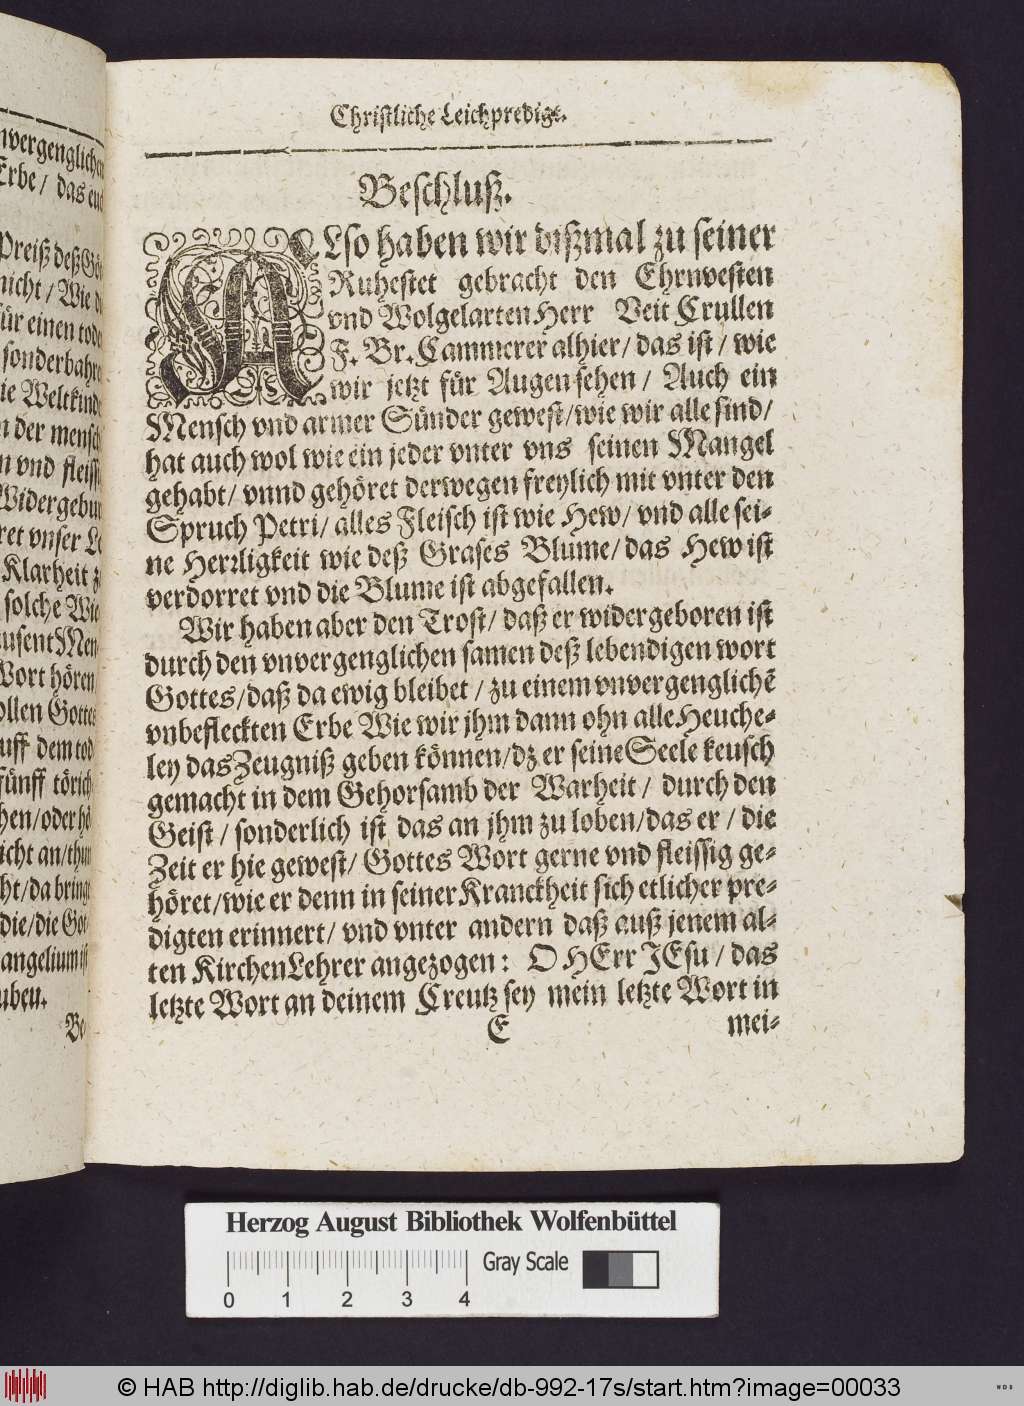 nvergenglichen
Erbe / das eu
Preiß deß Gö
nicht / Wie d
für einen tode
sonderbahre
ie Weltkinde
n der mensch
n vnd fleiss
Widergebur
ret vnser Le
Klarheit z
solche Wie
ausent Men
Wort hören
ollen Gottes
uff dem tod
fünff törich
hen / oder hö
icht an / thu
ht / da bring
die / die Got
angelium ist
uben.
Be
Christliche Leichpredigt.
Beschluß.
ALso haben wir dißmal zu seiner
Ruhestet gebracht den Ehrnvesten
vnd Wolgelarten Herr Veit Crullen
F. Br. Cammerer alhier / das ist / wie
wir jetzt für Augen sehen / Auch ein
Mensch vnd armer Sünder gewest / wie wir alle sind /
hat auch wol wie ein jeder vnter vns seinen Mangel
gehabt / vnnd gehöret derwegen freylich mit vnter den
Spruch Petri / alles Fleisch ist wie Hew / vnd alle sei-
ne Herrligkeit wie deß Grases Blume / das Hew ist
verdorret vnd die Blume ist abgefallen.
Wir haben aber den Trost / daß er widergeboren ist
durch den vnvergenglichen samen deß lebendigen wort
Gottes / daß da ewig bleibet / zu einem vnvergenglichẽ
vnbefleckten Erbe Wie wir jhm dann ohn alle Heuche-
ley das Zeugniß geben können / dz er seine Seele keusch
gemacht in dem Gehorsamb der Warheit / durch den
Geist / sonderlich ist das an jhm zu loben / das er / die
Zeit er hie gewest / Gottes Wort gerne vnd fleissig ge-
höret / wie er denn in seiner Kranckheit sich etlicher pre-
digten erinnert / vnd vnter andern daß auß jenem al-
ten Kirchen Lehrer angezogen: O HErr JEsu / das
letzte Wort an deinem Creutz sey mein letzte Wort in
E mei-
Herzog August Bibliothek Wolfenbüttel
0 1 2 3 4 Gray Scale
© HAB http://diglib.hab.de/drucke/db-992-17s/start.htm?image=00033